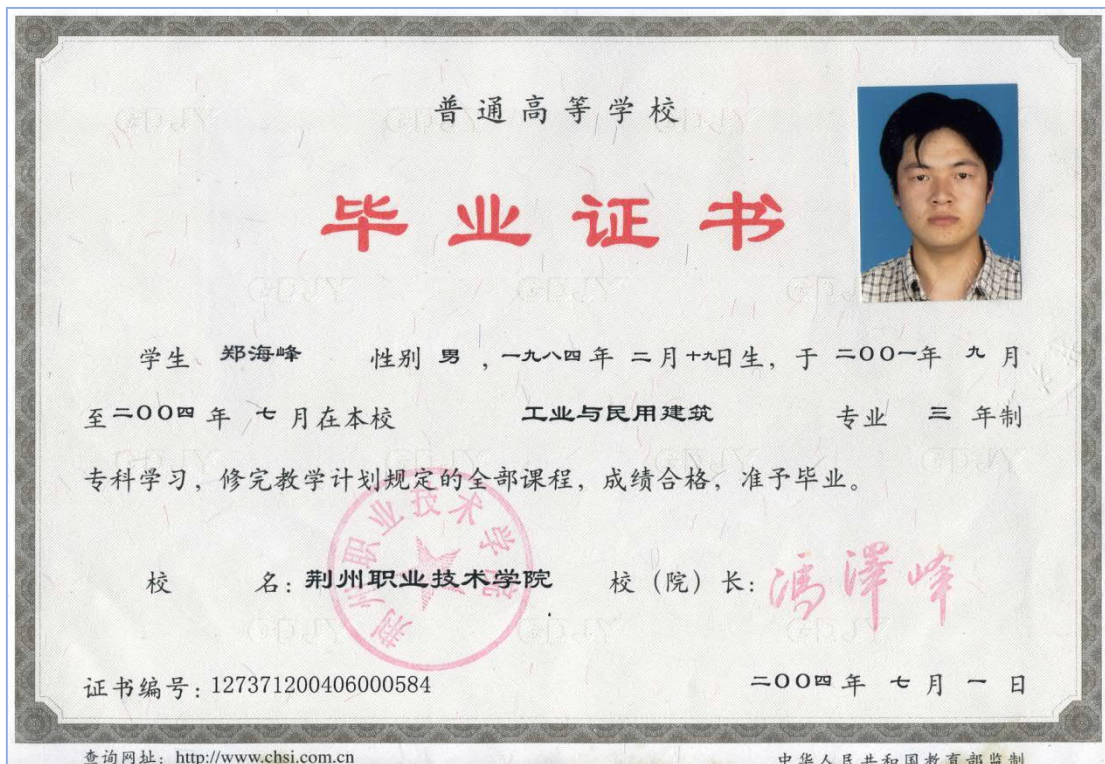 普通高等学校
毕业证书
学生 郑海峰 性别 男 ，一九八四年 二月十九日生，于 二〇〇一年 九 月
至二〇〇四 年 七 月在本校 工业与民用建筑 专业 三 年制
专科学习，修完教学计划规定的全部课程，成绩合格，准予毕业。
荆州职业技术学院
校 名：荆州职业技术学院 校（院）长：冯泽峰
证书编号：127371200406000584 二〇〇四 年 七 月 一 日
查询网址：http://www.chsi.com.cn 中华人民共和国教育部监制